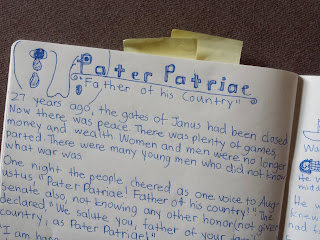 Pater Patriae
"Father of his Country"
27 years ago, the gates of Janus had been closed
Now there was peace. There was plenty of games,
money and wealth Women and men were no longer
parted. There were many young men who did not know
what war was.
One night the people cheered as one voice to Aug-
ustus "Pater Patriae! Father of his country!" The
senate also, not knowing any other honor (not given
declared "We salute you, father of your
country, as Pater Patriae!"
"I am
Wa
He w
He w
knew
had